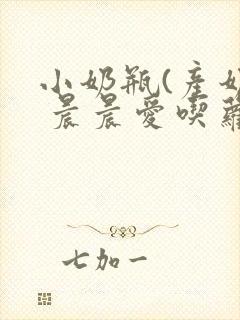 小奶瓶(產奶
晨晨愛喫蘿
七加一